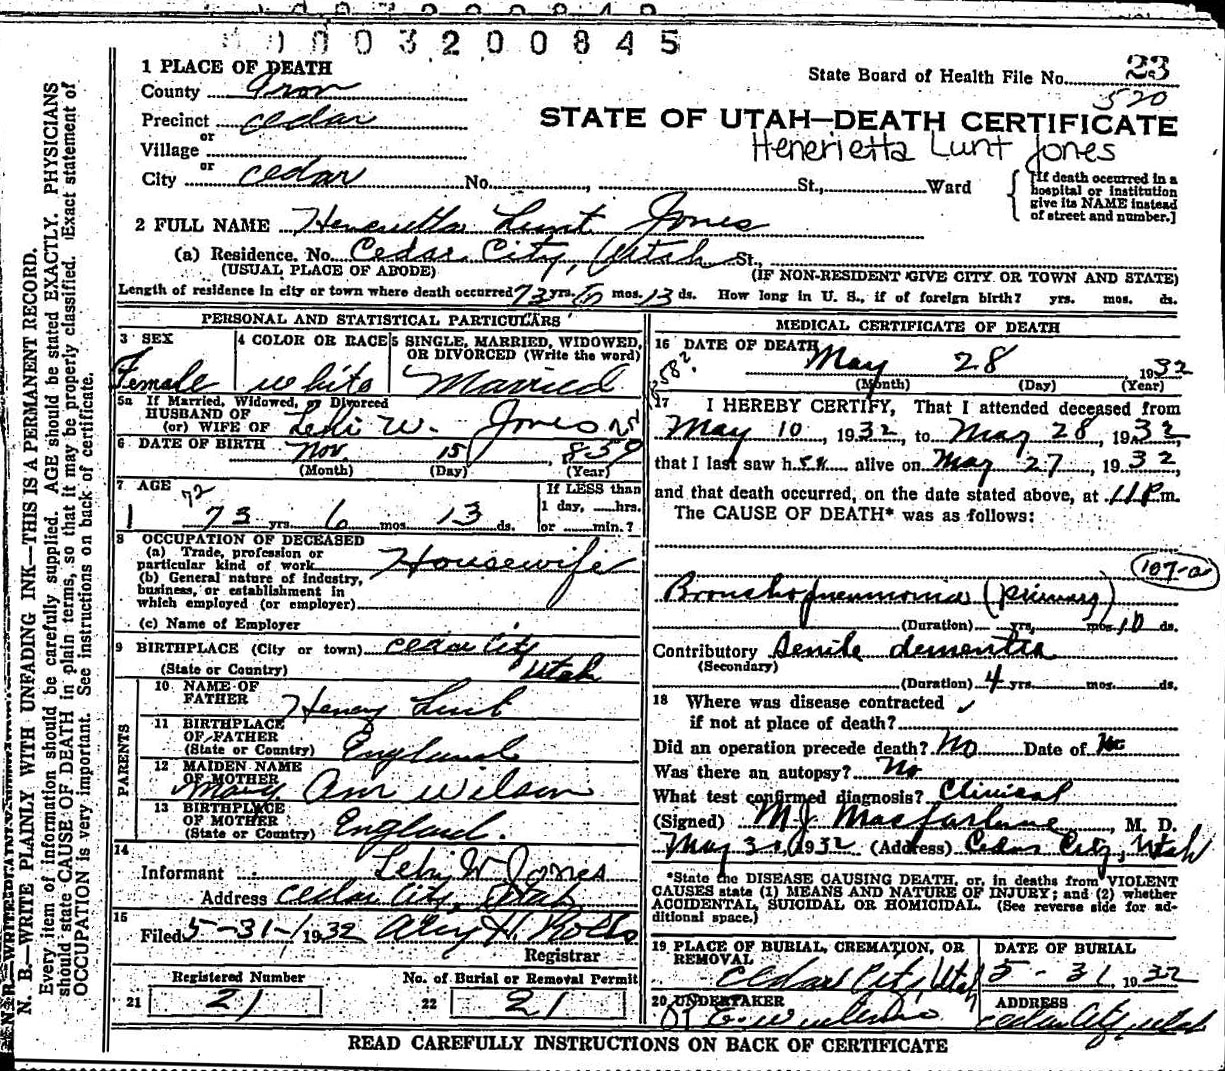 0003200845
1 PLACE OF DEATH
State Board of Health File No. 23
520
County Iron
Precinct Cedar
STATE OF UTAH—DEATH CERTIFICATE
or
Village
Henerietta Lunt Jones
or
City Cedar No. , St., Ward
[If death occurred in a
hospital or institution
give its NAME instead
of street and number.]
2 FULL NAME Henerietta Lunt Jones
(a) Residence. No. Cedar City, Utah St.,
(USUAL PLACE OF ABODE) (IF NON-RESIDENT GIVE CITY OR TOWN AND STATE)
Length of residence in city or town where death occurred 73 yrs. 6 mos. 13 ds. How long in U. S., if of foreign birth? yrs. mos. ds.
PERSONAL AND STATISTICAL PARTICULARS
3 SEX
Female
4 COLOR OR RACE
white
5 SINGLE, MARRIED, WIDOWED,
OR DIVORCED (Write the word)
Married
5a If Married, Widowed, or Divorced
HUSBAND OF
(or) WIFE OF W. Jones
6 DATE OF BIRTH Nov 15, 1859
(Month) (Day) (Year)
7 AGE
72
73 yrs. 6 mos. 13 ds.
If LESS than
1 day, hrs.
or min.?
8 OCCUPATION OF DECEASED
(a) Trade, profession or
particular kind of work Housewife
(b) General nature of industry,
business, or establishment in
which employed (or employer)
(c) Name of Employer
9 BIRTHPLACE (City or town) Cedar City
(State or Country) Utah
PARENTS
10 NAME OF
FATHER Henry Lunt
11 BIRTHPLACE
OF FATHER
(State or Country) England
12 MAIDEN NAME
OF MOTHER
Mary Ann Wilson
13 BIRTHPLACE
OF MOTHER
(State or Country) England.
14
Informant Lehi W Jones
Address Cedar City, Utah
15
Filed 5-31-1932
Registrar
Registered Number
21 21
No. of Burial or Removal Permit
22 21
MEDICAL CERTIFICATE OF DEATH
16 DATE OF DEATH
May 28 1932
(Month) (Day) (Year)
1858?
17 I HEREBY CERTIFY, That I attended deceased from
May 10, 1932, to May 28, 1932,
that I last saw her alive on May 27, 1932,
and that death occurred, on the date stated above, at 11 P.m.
The CAUSE OF DEATH* was as follows:
107-a
Bronchopneumonia (primary)
(Duration) yrs. mos. 10 ds.
Contributory Senile dementia
(Secondary)
(Duration) 4 yrs. mos. ds.
18 Where was disease contracted
if not at place of death?
Did an operation precede death? No Date of
Was there an autopsy? No
What test confirmed diagnosis? Clinical
(Signed) M.J. Macfarlane, M. D.
May 31, 1932 (Address) Cedar City, Utah
*State the DISEASE CAUSING DEATH, or, in deaths from VIOLENT
CAUSES state (1) MEANS AND NATURE OF INJURY; and (2) whether
ACCIDENTAL, SUICIDAL OR HOMICIDAL. (See reverse side for ad-
ditional space.)
19 PLACE OF BURIAL, CREMATION, OR
REMOVAL
Cedar City, Utah
DATE OF BURIAL
5-31, 1932
20 UNDERTAKER
ADDRESS
Cedar City, Utah
READ CAREFULLY INSTRUCTIONS ON BACK OF CERTIFICATE
N. B.—WRITE PLAINLY WITH UNFADING INK—THIS IS A PERMANENT RECORD.
Every item of information should be carefully supplied. AGE should be stated EXACTLY. PHYSICIANS
should state CAUSE OF DEATH in plain terms, so that it may be properly classified. Exact statement of
OCCUPATION is very important. See instructions on back of certificate.